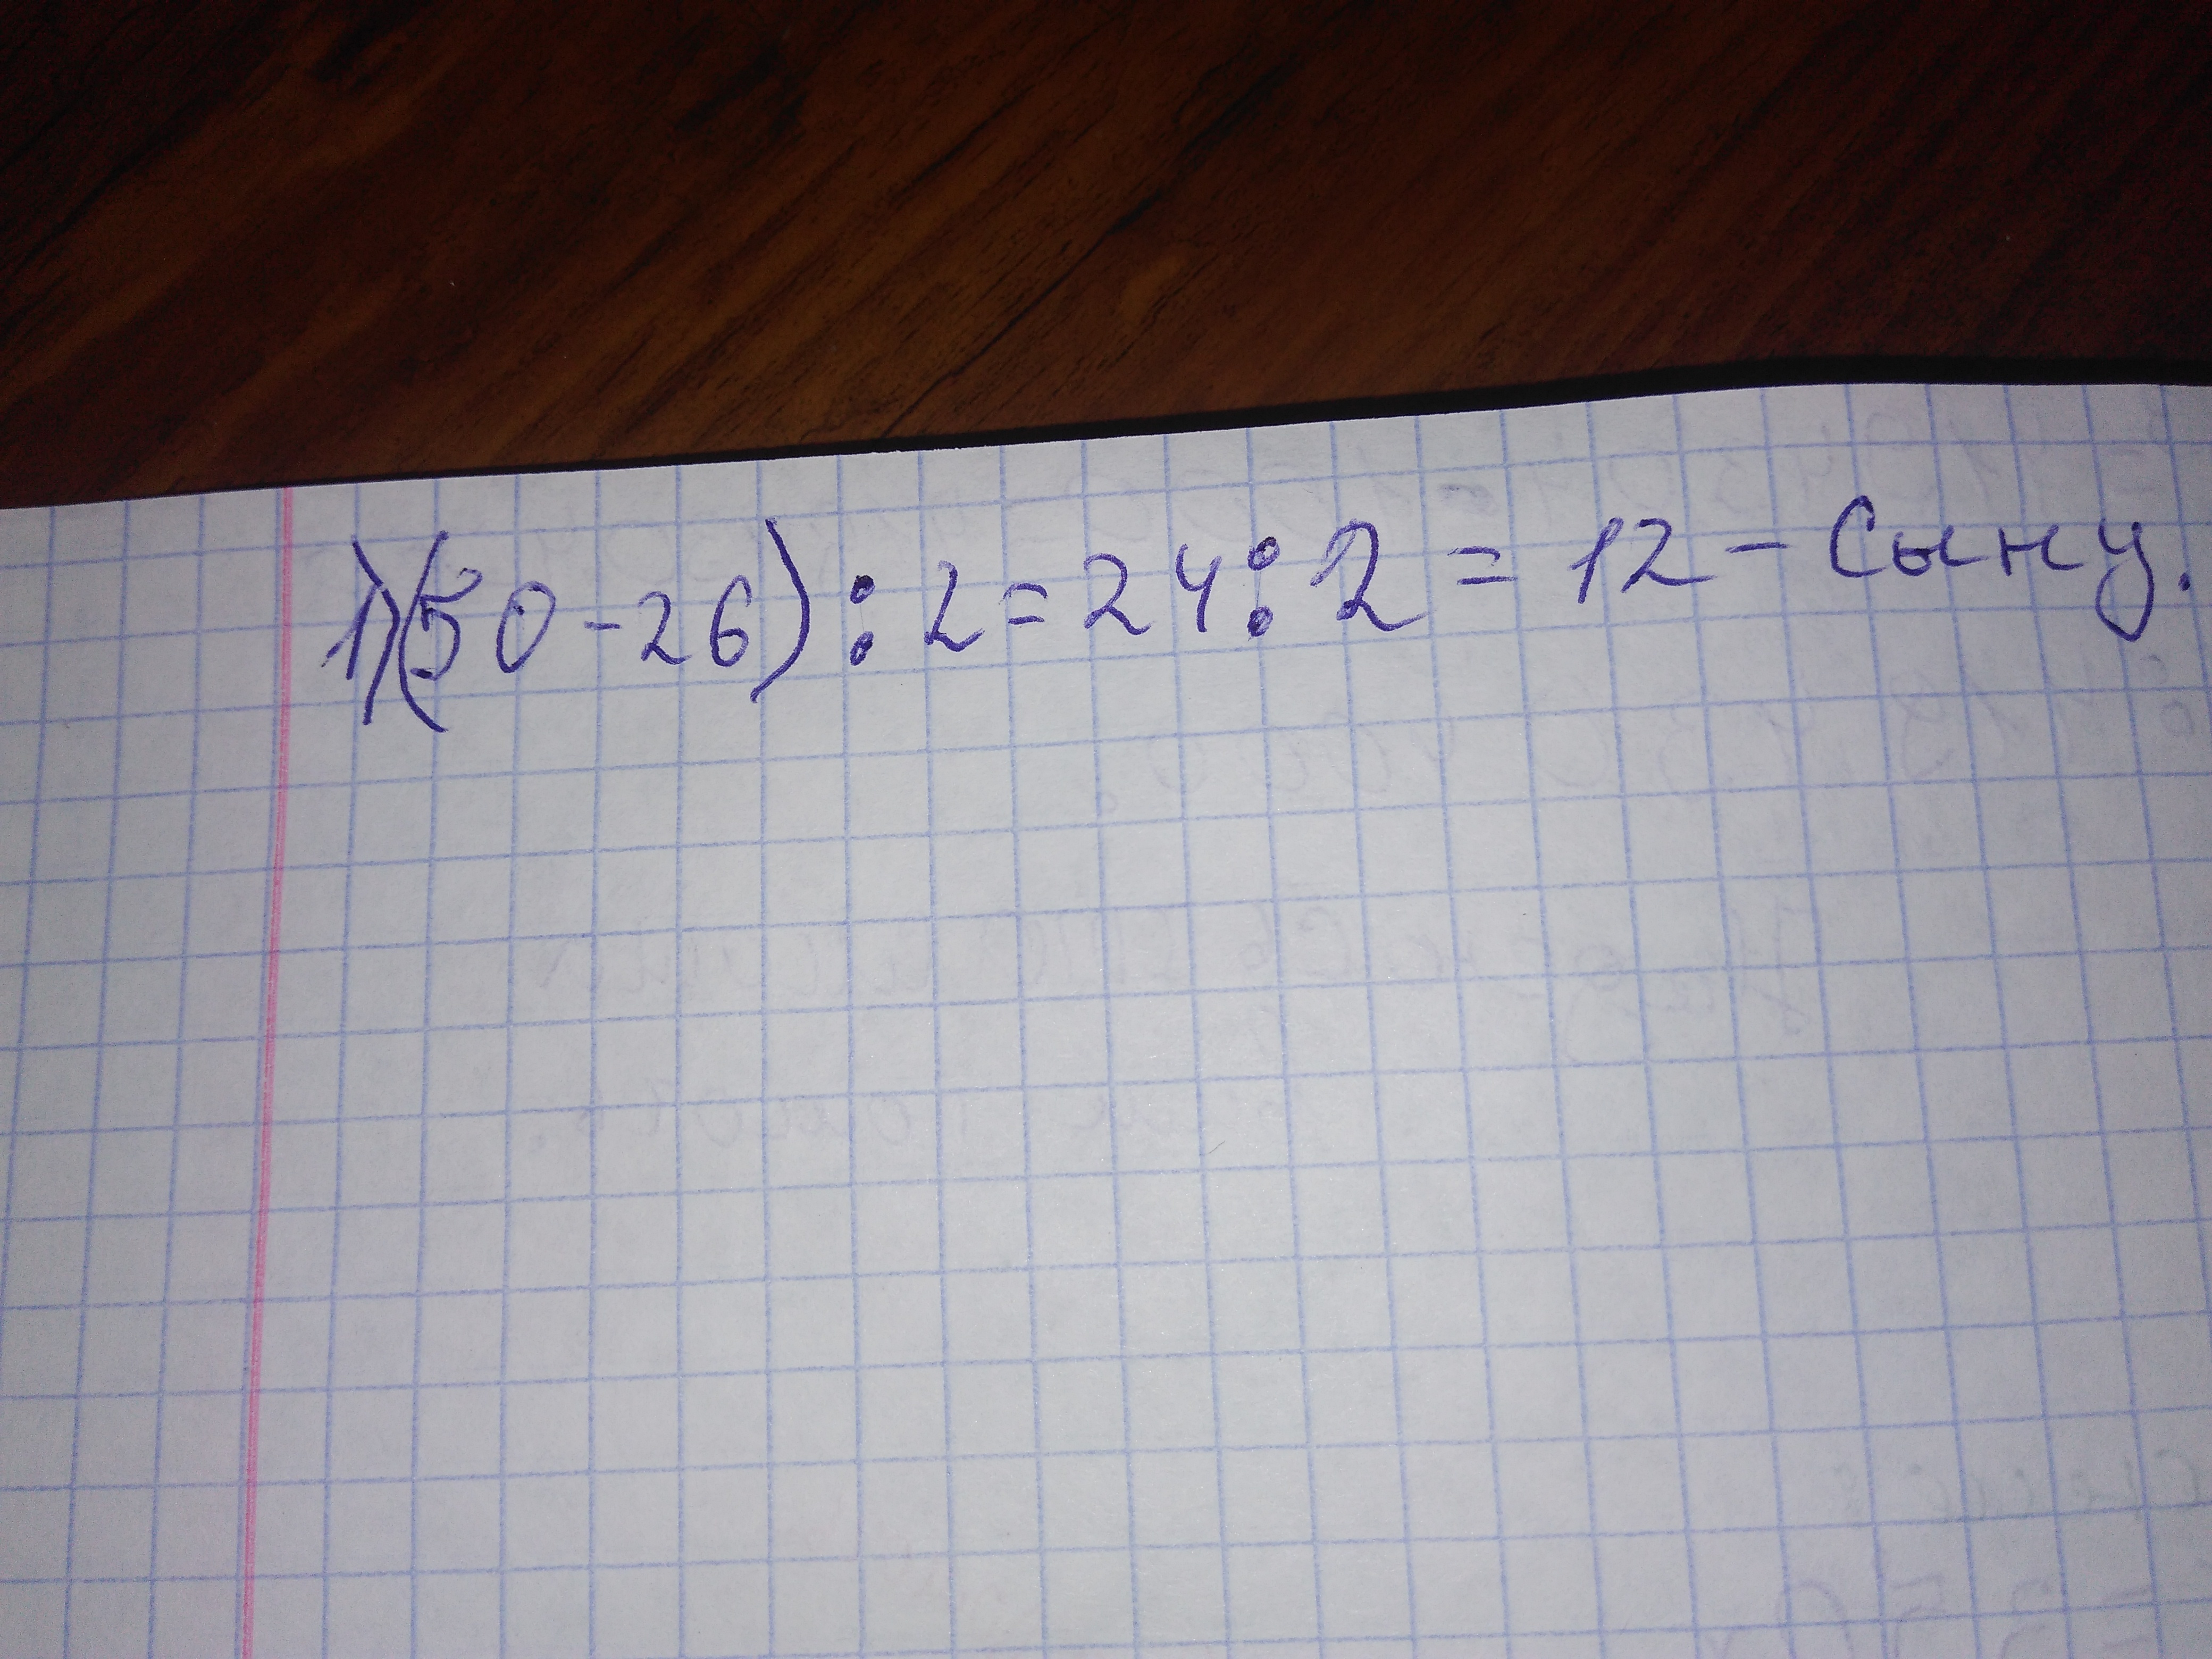 1)(50-26):2=24:2=12-сыну.